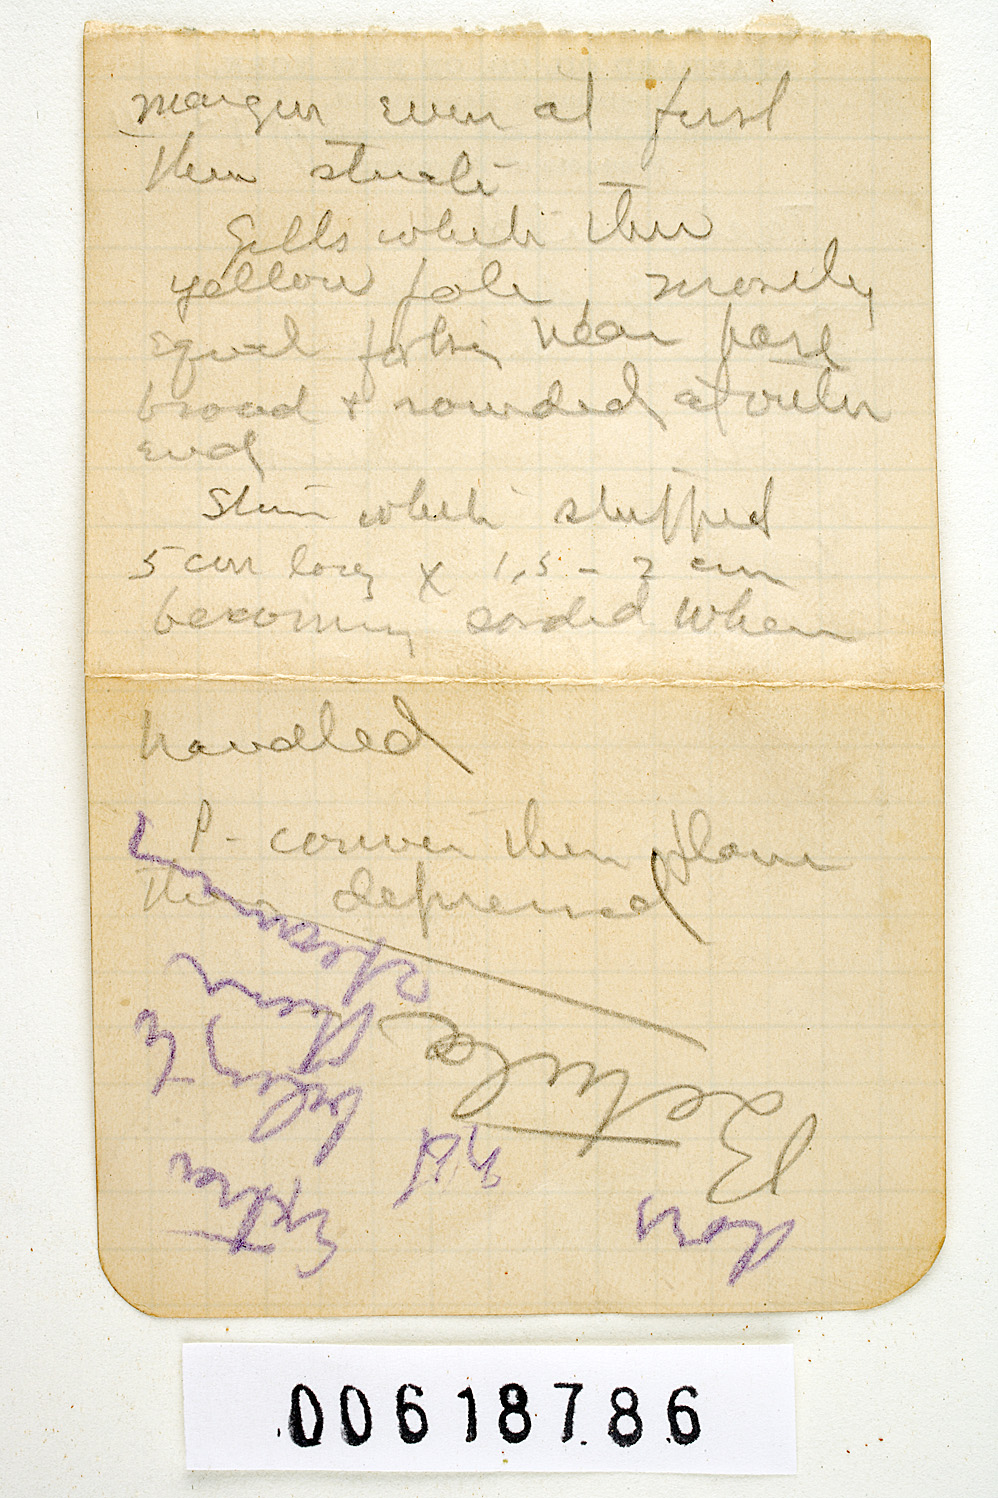 margin even at first
then striate
Gills white then
yellow pale, mostly
equal forking near base
broad + rounded at outer
end
Stem white stuffed
5 cm long x 1,5 - 2 cm
becoming eroded when
handled
P - convex then plane
then depressed
Betula
does
not
Extra
belong to
specimen
00618786